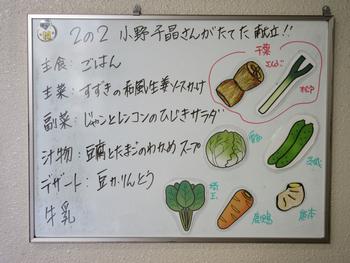 2の2 小野千晶さんがたてた献立!!
主食: ごはん
主菜: すずきの和風生姜ソースかけ
副菜: じゃことレンコンのひじきサラダ
汁物: 豆腐とたまごのわかめスープ
デザート: 豆かりんとう
牛乳
千葉
茨城
埼玉
鹿児島
熊本